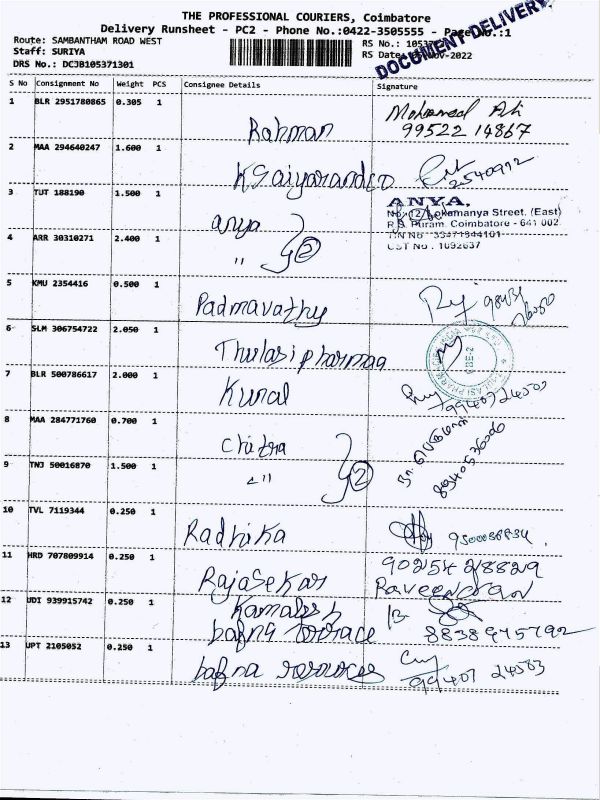 THE PROFESSIONAL COURIERS, Coimbatore
Delivery Runsheet - PC2 - Phone No.:0422-3505555 - Page No.:1
Route: SAMBANTHAM ROAD WEST
RS No.:
Staff: SURIYA
RS Date: Nov-2022
DRS No.: DCJB105371301
DOCUMENT DELIVERY
S No Consignment No Weight PCS Consignee Details Signature
1 BLR 2951780865 0.305 1 Rahman
99522 14867
2 MAA 294640247 1.600 1
2540972
3 TUT 188190 1.500 1 anya
ANYA,
No: 12, Lokamanya Street, (East)
R.S. Puram, Coimbatore - 641 002.
CST No : 1092637
4 ARR 30310271 2.400 1 " 2
5 KMU 2354416 0.500 1 Padmavathy
6 SLM 306754722 2.050 1 Thulasi pharmaa
7 BLR 500786617 2.000 1 Kunal
8 MAA 284771760 0.700 1 Chitra
9 TNJ 50016870 1.500 1 " 2
10 TVL 7119344 0.250 1 Radhika
11 HRD 707809914 0.250 1 Rajasekar
90254 28829
Raveendran
12 UDI 939915742 0.250 1 Kamalesh
bafna terrace
8838945792
13 UPT 2105052 0.250 1 bafna resources
99407 24583